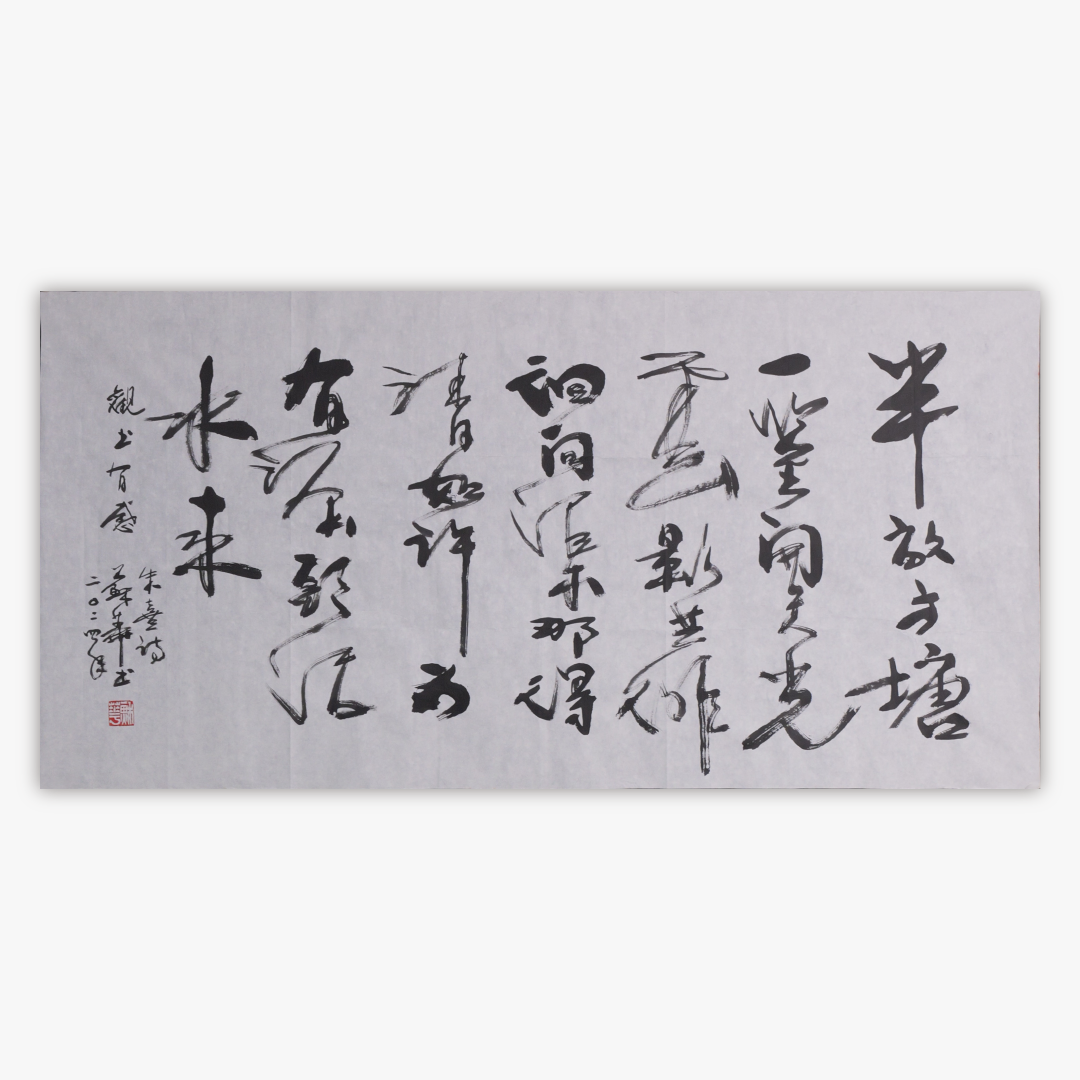 半畝方塘
一鑒開天光
雲影共徘
徊問渠那得
清如許為
有源頭活
水来
觀书有感
朱熹詩
蘇華书
二〇二四年